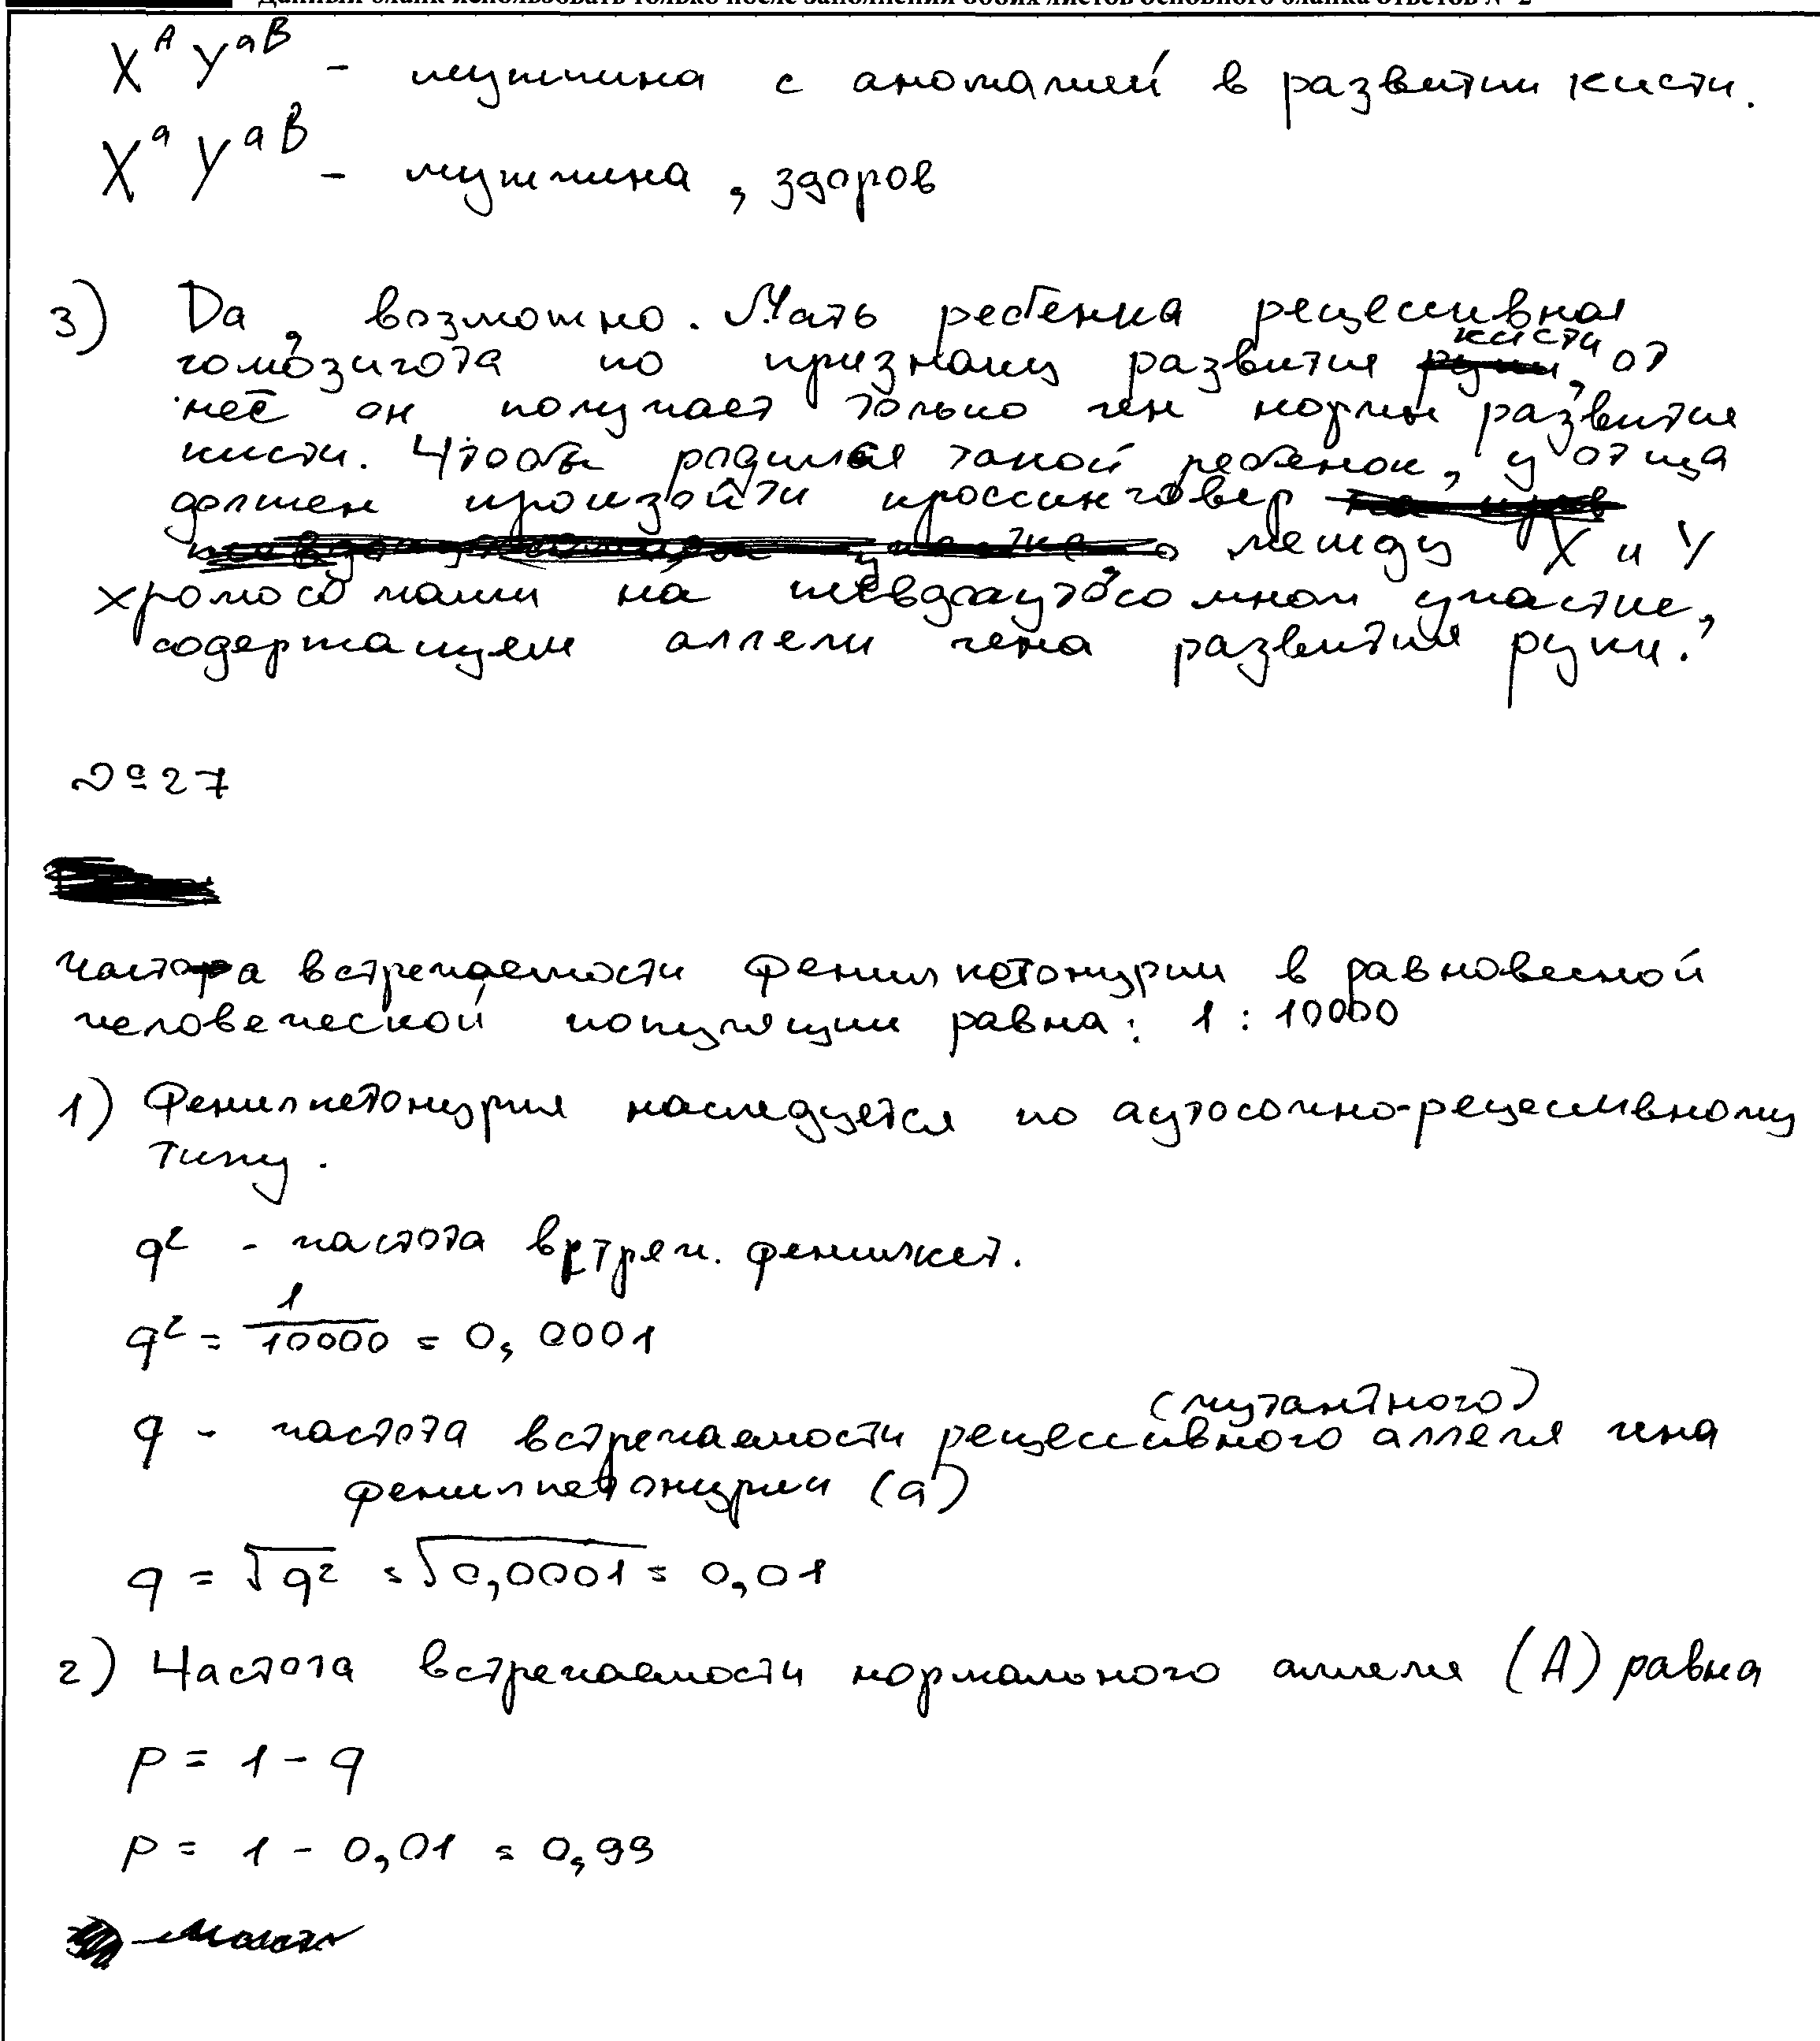 Данный бланк использовать только после заполнения обоих листов основного бланка ответов № 2
X^A Y^aB - мужчина с аномалией в развитии кисти.
X^a Y^aB - мужчина, здоров
3) Да, возможно. Мать ребенка рецессивная
кисти
гомозигота по признаку развития, от
неё он получает только ген нормы развития
кисти. Чтобы родился такой ребенок, у отца
должен произойти кроссинговер
между X и Y
хромосомами на псевдоаутосомном участке,
содержащем аллели гена развития руки.
№ 27
Частота встречаемости фенилкетонурии в равновесной
человеческой популяции равна: 1 : 10000
1) Фенилкетонурия наследуется по аутосомно-рецессивному
типу.
q² - частота встреч. фенилкет.
q² = 1/10000 = 0,0001
(мутантного)
q - частота встречаемости рецессивного аллеля гена
фенилкетонурии (a)
q = √q² = √0,0001 = 0,01
2) Частота встречаемости нормального аллеля (A) равна
p = 1 - q
p = 1 - 0,01 = 0,99